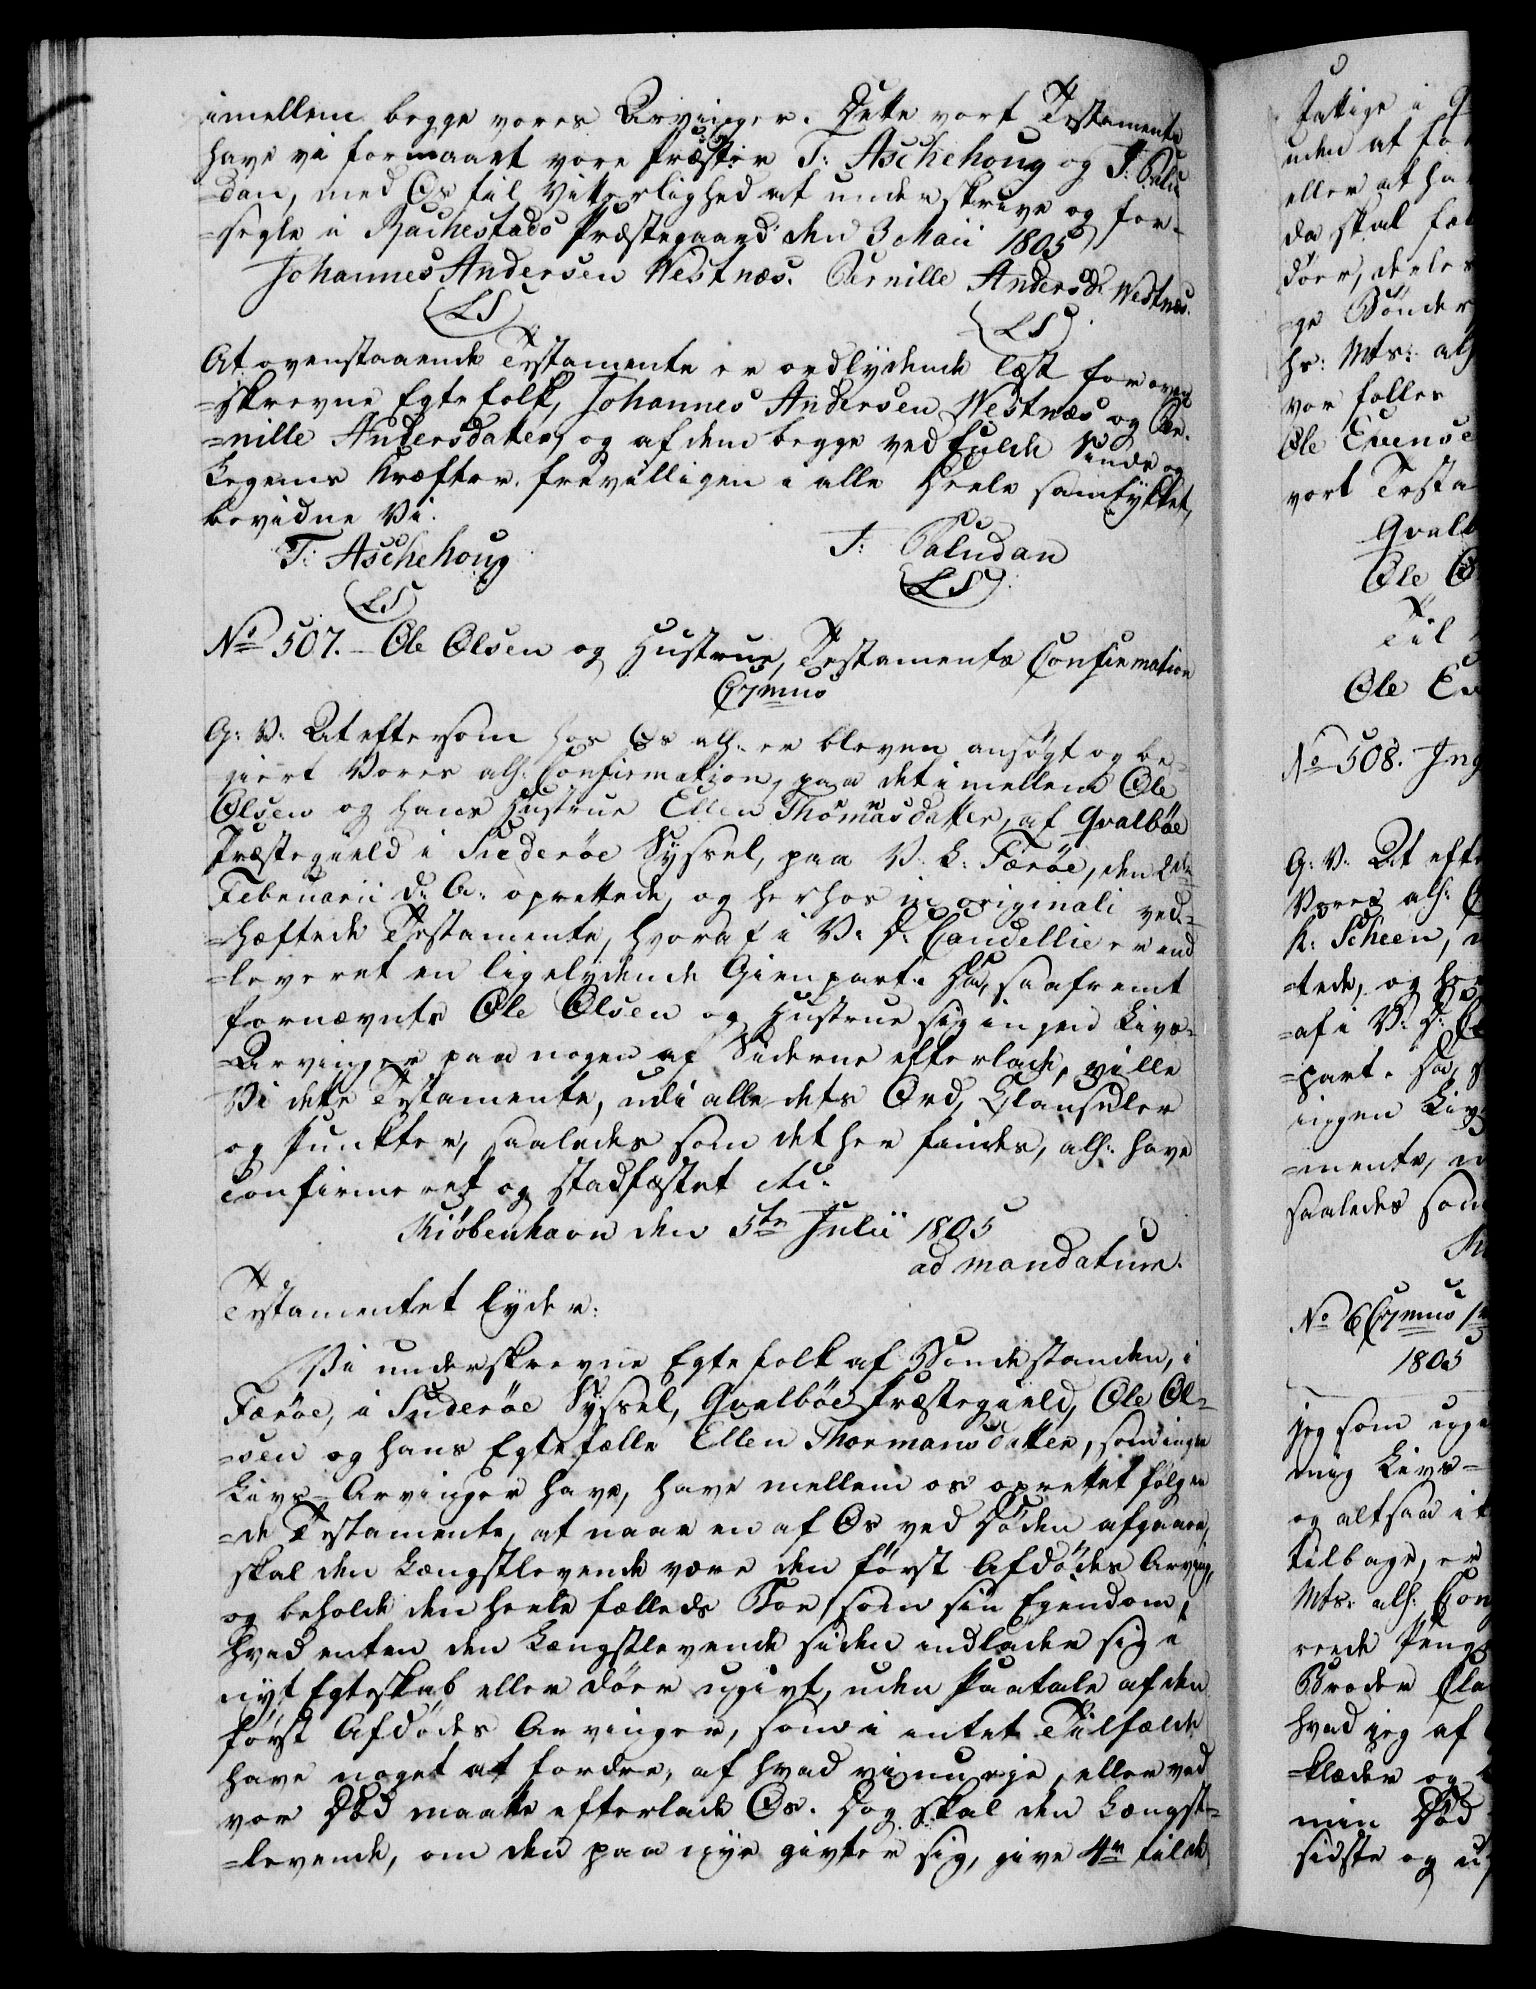 imellem begge vores Arvinger. Dette vort Testamente
have vi formaaet vore Præster T: Aschehoug og J: Palu-
=dan, med Os til Vitterlighed at underskrive og for-
=segle i Rachestads Præstegaard den 3 Maii 1805
Johannes Andersen Westnæs. Pernille Andersd: Westnæs.
(LS) (LS)
At ovenstaaende Testamente er ordlydende læst for oven-
=skrevne Egtefolk, Johannes Andersen Westnæs og Per-
=nille Andersdatter, og af dem begge ved fulde Sinds og
Legems Kræfter, frivilligen i alle Deele samtykket,
bevidne Vi.
T: Aschehoug J: Paludan
(LS) (LS)
No 507. - Ole Olsen og Hustrue, Testaments Confirmation
G: V: At eftersom hos Os alh: er bleven ansøgt og be-
=giert Vores alh: Confirmation, paa det imellem Ole
Olsen og hans Hustrue Ellen Thormansdatter, af Qvalbøe
Præstegield i Suderøe Syssel, paa V. L. Færøe, den 2den
Februarii d: A: oprettede, og herhos in originali ved-
=hæftede Testamente, hvoraf i V: D: Cancellie er ind
=leveret en ligelydende Gienpart. Da, saafremt
fornævnte Ole Olsen og Hustrue sig ingen Livs-
=Arvinger paa nogen af Siderne efterlade, ville
Vi dette Testamente, udi alle dets Ord, Clausuler
og Puncter, saaledes som det her findes, alh: have
confirmeret og stadfæstet etc.
Kiøbenhavn den 5te Julii 1805
ad mandatum.
Testamentet lyder:
Vi underskrevne Egtefolk af Bondestanden, i
Færøe, i Suderøe Syssel, Qvalbøe Præstegield, Ole Ol-
=sen og hans Egtefælle Ellen Thormansdatter, som ingen
Livs-Arvinger have, have mellem os oprettet følgen
=de Testamente, at naar en af Os ved Døden afgaaer,
skal den Længstlevende være den først Afdødes Arving,
og beholde den heele fælleds Boe, som sin Ejendom,
hvad enten den Længstlevende siden indlader sig i
nyt Egteskab eller døer ugivt, uden Paatale af den
først Afdødes Arvinger, som i intet Tilfælde
have noget at fordre, af hvad vi nu eje, eller ved
vor Død maatte efterlade Os. Dog skal den Længst-
=levende, om den paa nye givter sig, give 4 rd til de
Fattige i
uden at
eller at ha
da skal
døer, deele
=ge Bønder
hs: Mts: alh
vor følles
Ole Evense
vort Testa
Qvalb
Ole O
Til
Ole Ev
No 508.
G: V: At eft
Vores alh: C
K: Scheen,
=tede, og he
=af i V: D: C
=part. Da, s
ingen Liv
=mente, u
saaledes som
No 6
1805
jeg som uge
mig Livs-
og altsaa i
tilbage, er
Mts: alh: Con
reede Peng
Broder Cla
hvad jeg af
=klæder og
min Død
sidste og